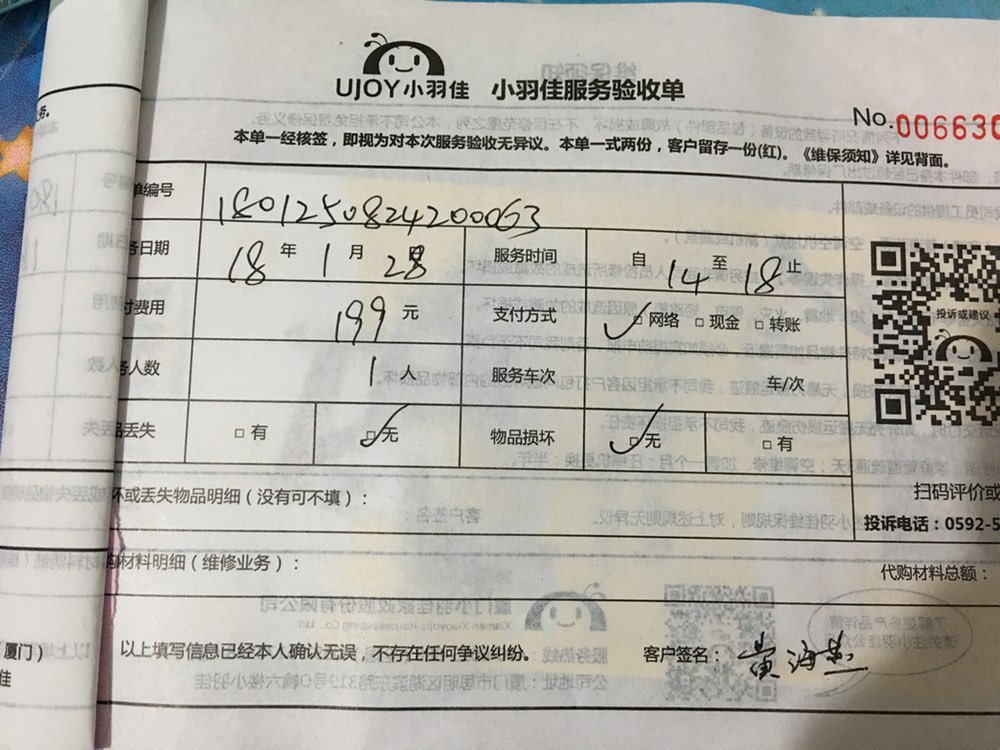 UJOY小羽佳 小羽佳服务验收单
No.006630
本单一经核签，即视为对本次服务验收无异议。本单一式两份，客户留存一份(红)。《维保须知》详见背面。
单编号 180125084242000063
务日期 18 年 1 月 28 服务时间 自 14 至 18 止
付费用 199 元 支付方式 ☑网络 □现金 □转账
务人数 1 人 服务车次 车/次
品丢失 □有 ☑无 物品损坏 ☑无 □有
投诉或建议
扫码评价或
投诉电话：0592-5
坏或丢失物品明细（没有可不填）：
购材料明细（维修业务）：
代购材料总额：
以上填写信息已经本人确认无误，不存在任何争议纠纷。 客户签名：黄海燕
厦门）
佳